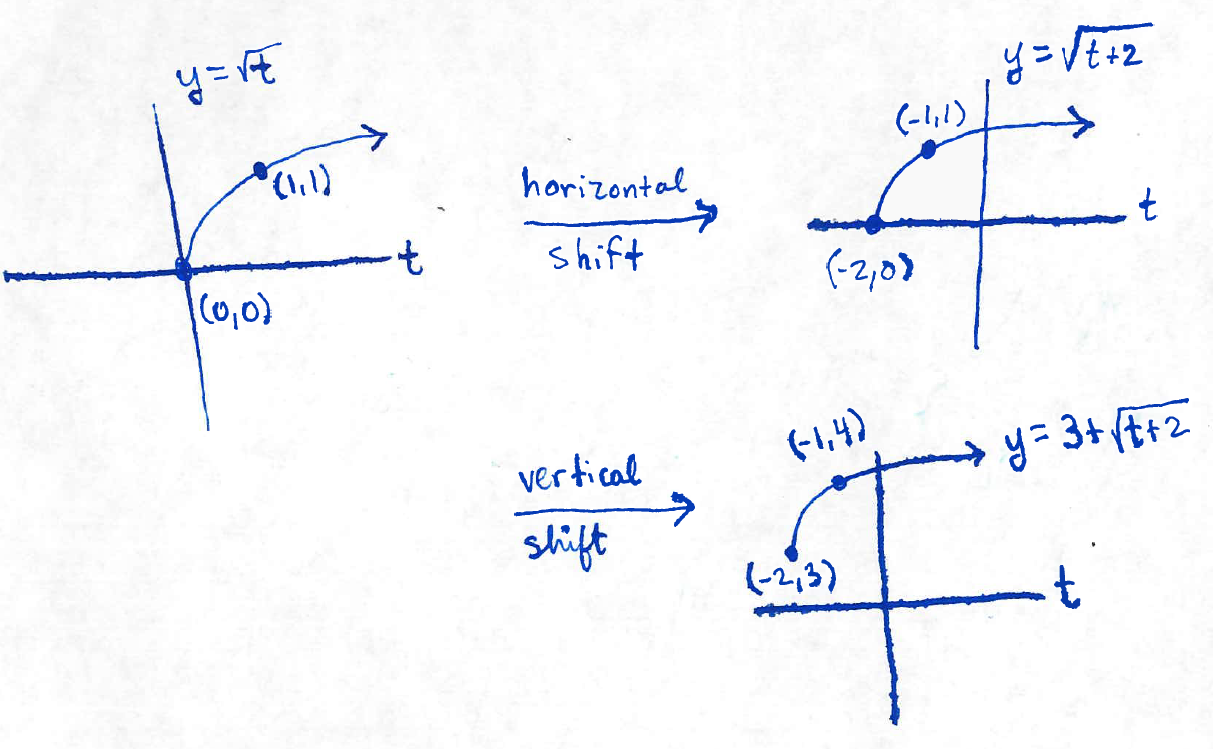 y=√t
(1,1)
t
(0,0)
horizontal
shift
y=√t+2
(-1,1)
t
(-2,0)
vertical
shift
(-1,4)
y=3+√t+2
(-2,3)
t